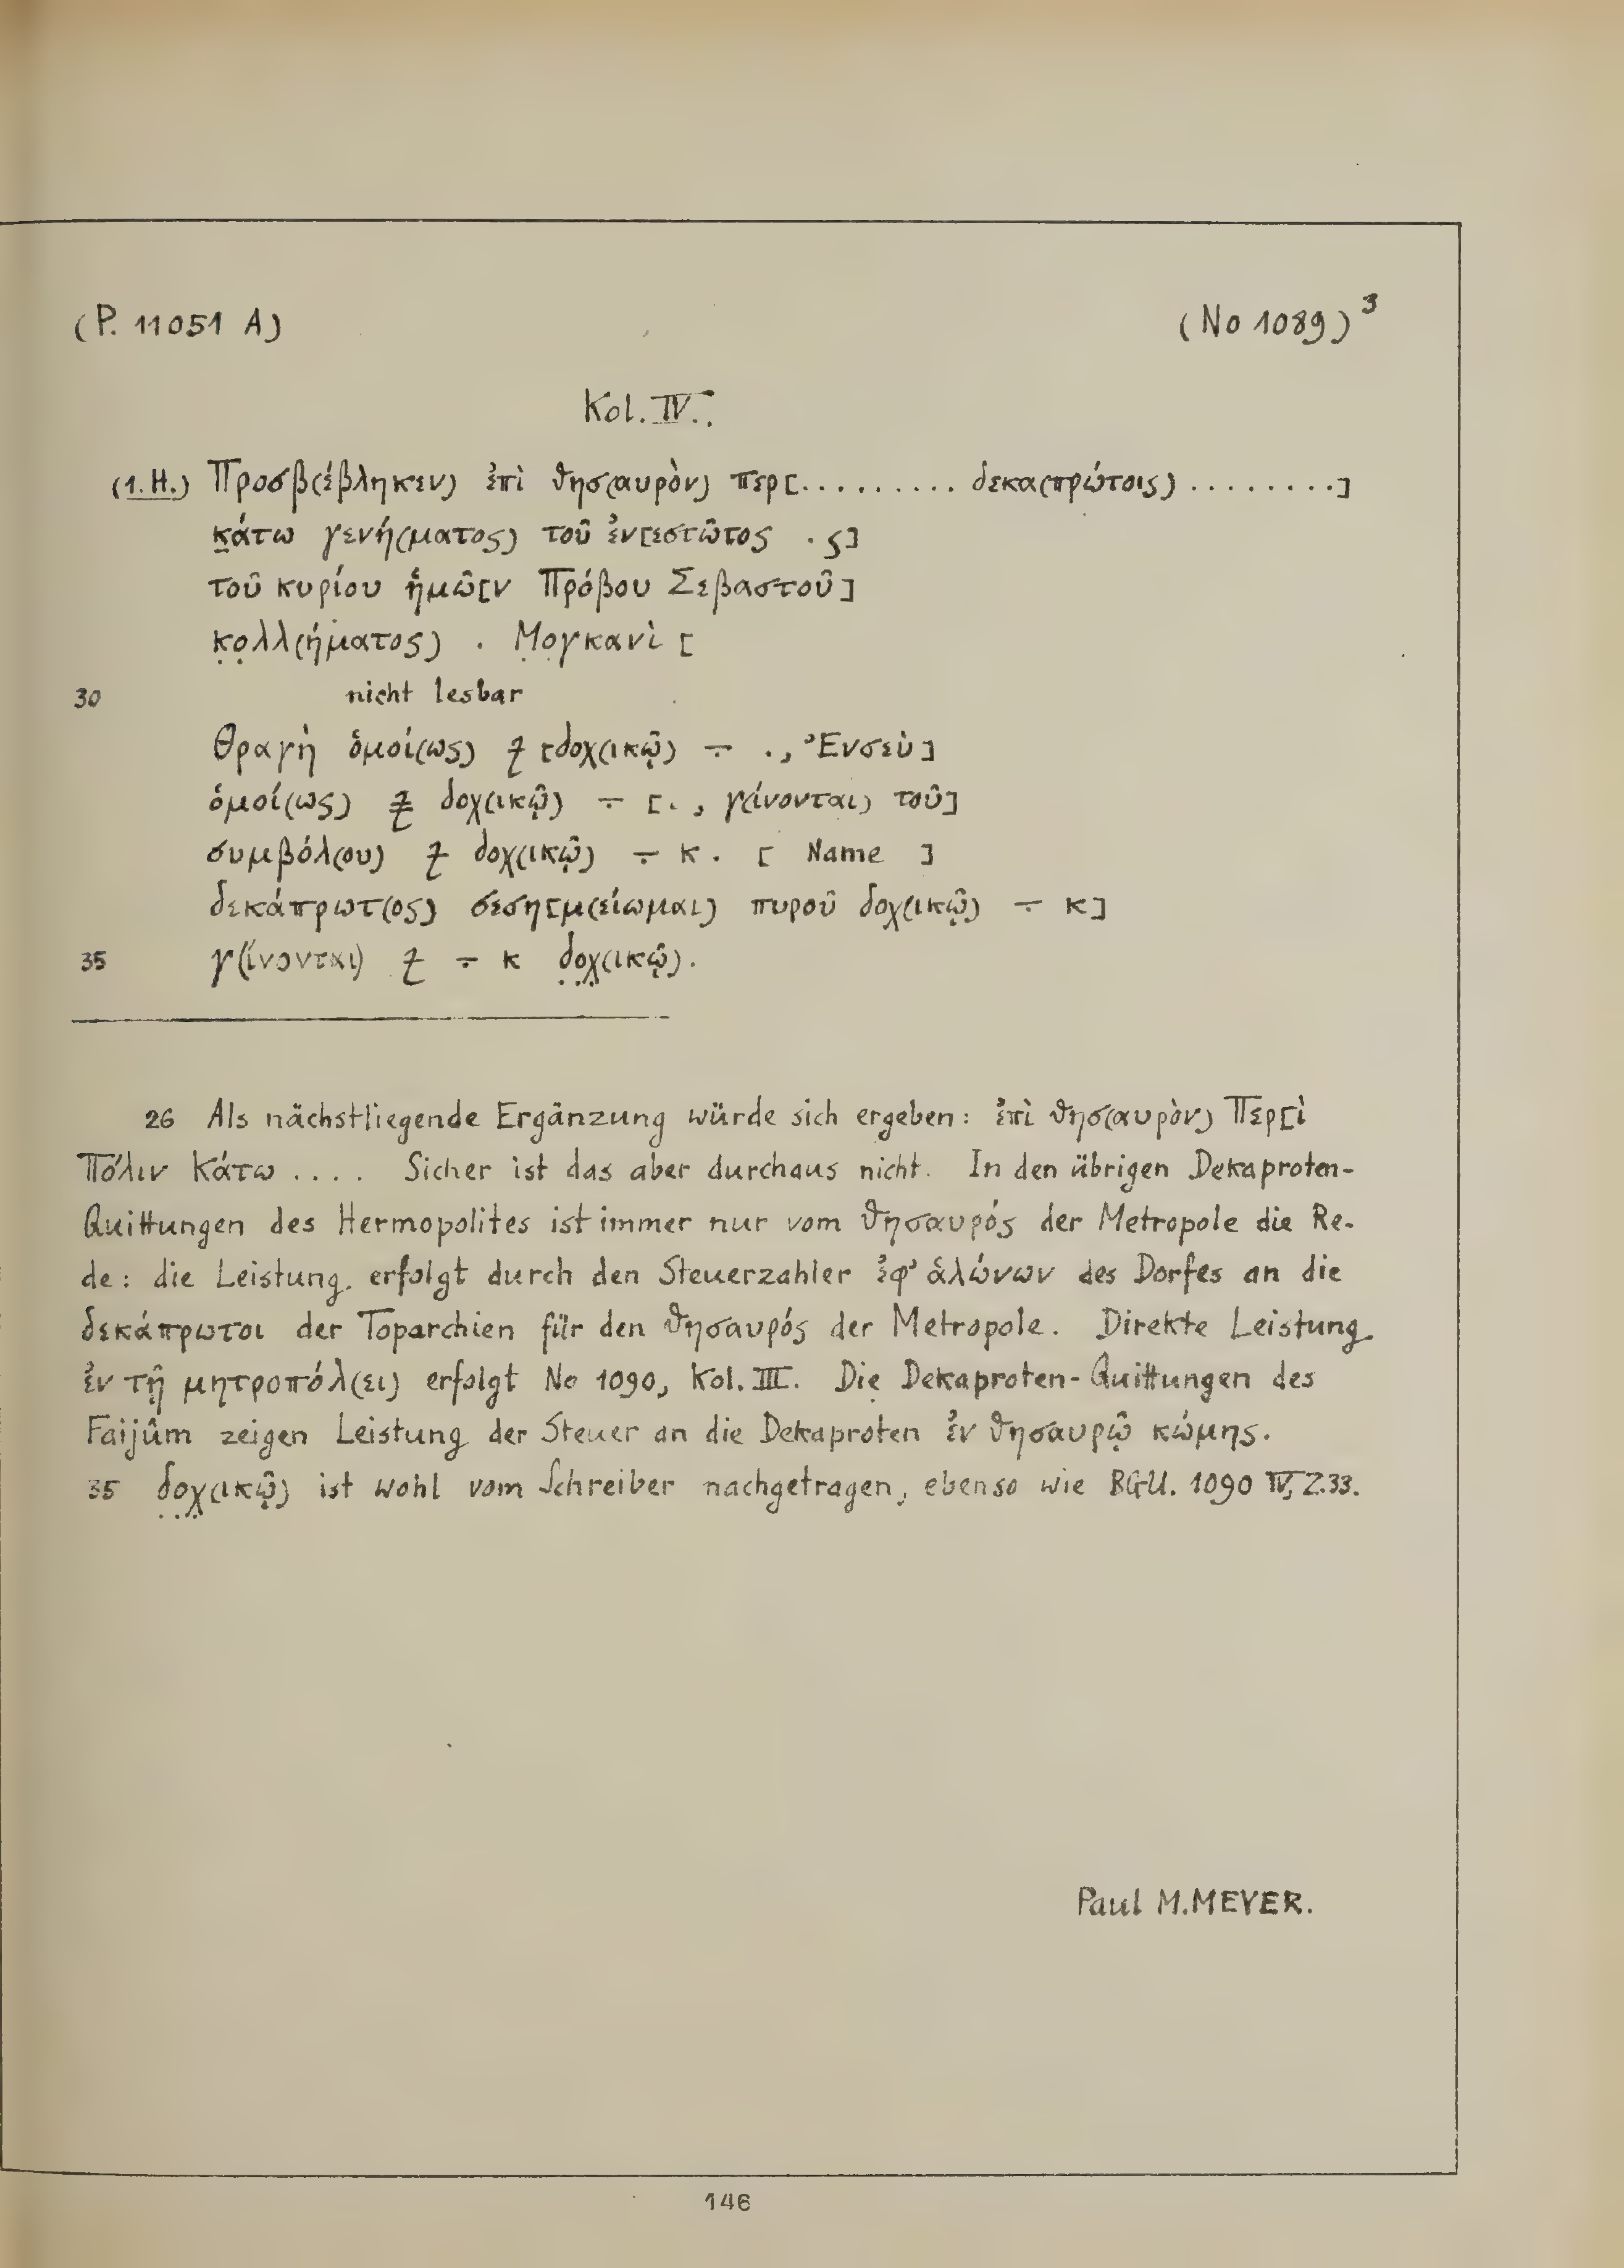 (P. 11051 A) (No 1089)³
Kol. IV.
(1.H.) Προσβ(έβληκεν) ἐπὶ θησ(αυρὸν) περ[......... δεκα(πρώτοις) ........]
κάτω γενή(ματος) τοῦ ἐν[εστῶτος . ς]
τοῦ κυρίου ἡμῶ[ν Πρόβου Σεβαστοῦ]
κ̣ο̣λλ(ήματος) . Μ̣ο̣γκανὶ [
30 nicht lesbar
Θραγὴ ὁμοί(ως) [δοχ(ικῷ) ÷ ., Ἐνσεὺ]
ὁμοί(ως) δοχ(ικῷ) ÷ [., γ(ίνονται) τοῦ]
συμβόλ(ου) δοχ(ικῷ) ÷ κ . [ Name ]
δεκάπρωτ(ος) σεση[μ(είωμαι) πυροῦ δοχ(ικῷ) ÷ κ]
35 γ(ίνονται) ÷ κ δ̣ο̣χ̣(ικῷ).
26 Als nächstliegende Ergänzung würde sich ergeben: ἐπὶ θησ(αυρὸν) Περ[ὶ
Πόλιν Κάτω .... Sicher ist das aber durchaus nicht. In den übrigen Dekaproten-
Quittungen des Hermopolites ist immer nur vom θησαυρός der Metropole die Re-
de: die Leistung erfolgt durch den Steuerzahler ἐφ' ἁλώνων des Dorfes an die
δεκάπρωτοι der Toparchien für den θησαυρός der Metropole. Direkte Leistung
ἐν τῇ μητροπόλ(ει) erfolgt No 1090, Kol. III. Die Dekaproten-Quittungen des
Faijûm zeigen Leistung der Steuer an die Dekaproten ἐν θησαυρῷ κώμης.
35 δ̣ο̣χ̣(ικῷ) ist wohl vom Schreiber nachgetragen, ebenso wie BGU. 1090 IV, Z.33.
Paul M. MEYER.
146